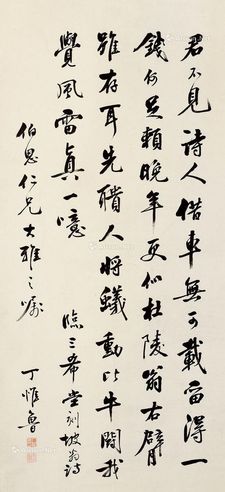 君不見詩人借車無可載留得一
錢何足賴晚年更似杜陵翁右臂
雖存耳先聵人將蟻動作牛鬥我
覺風雷真一噫
臨三希堂刻坡翁詩
伯恩仁兄大雅之囑
丁惟魯